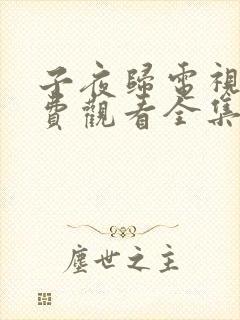 子夜歸電視
費觀看全集
塵世之主